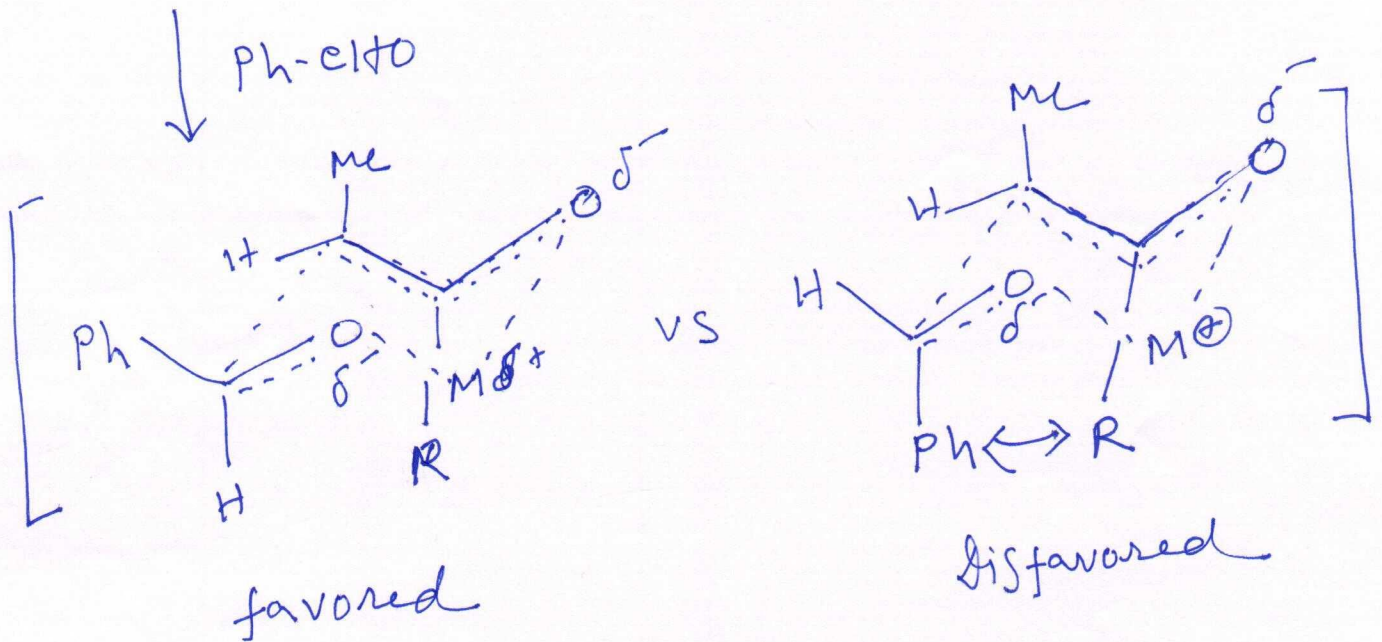 Ph-CHO
Me
H
O δ-
Ph
O
δ
Mδ+
R
H
favored
vs
Me
H
O δ-
H
O
δ
M⊕
Ph ↔ R
Disfavored